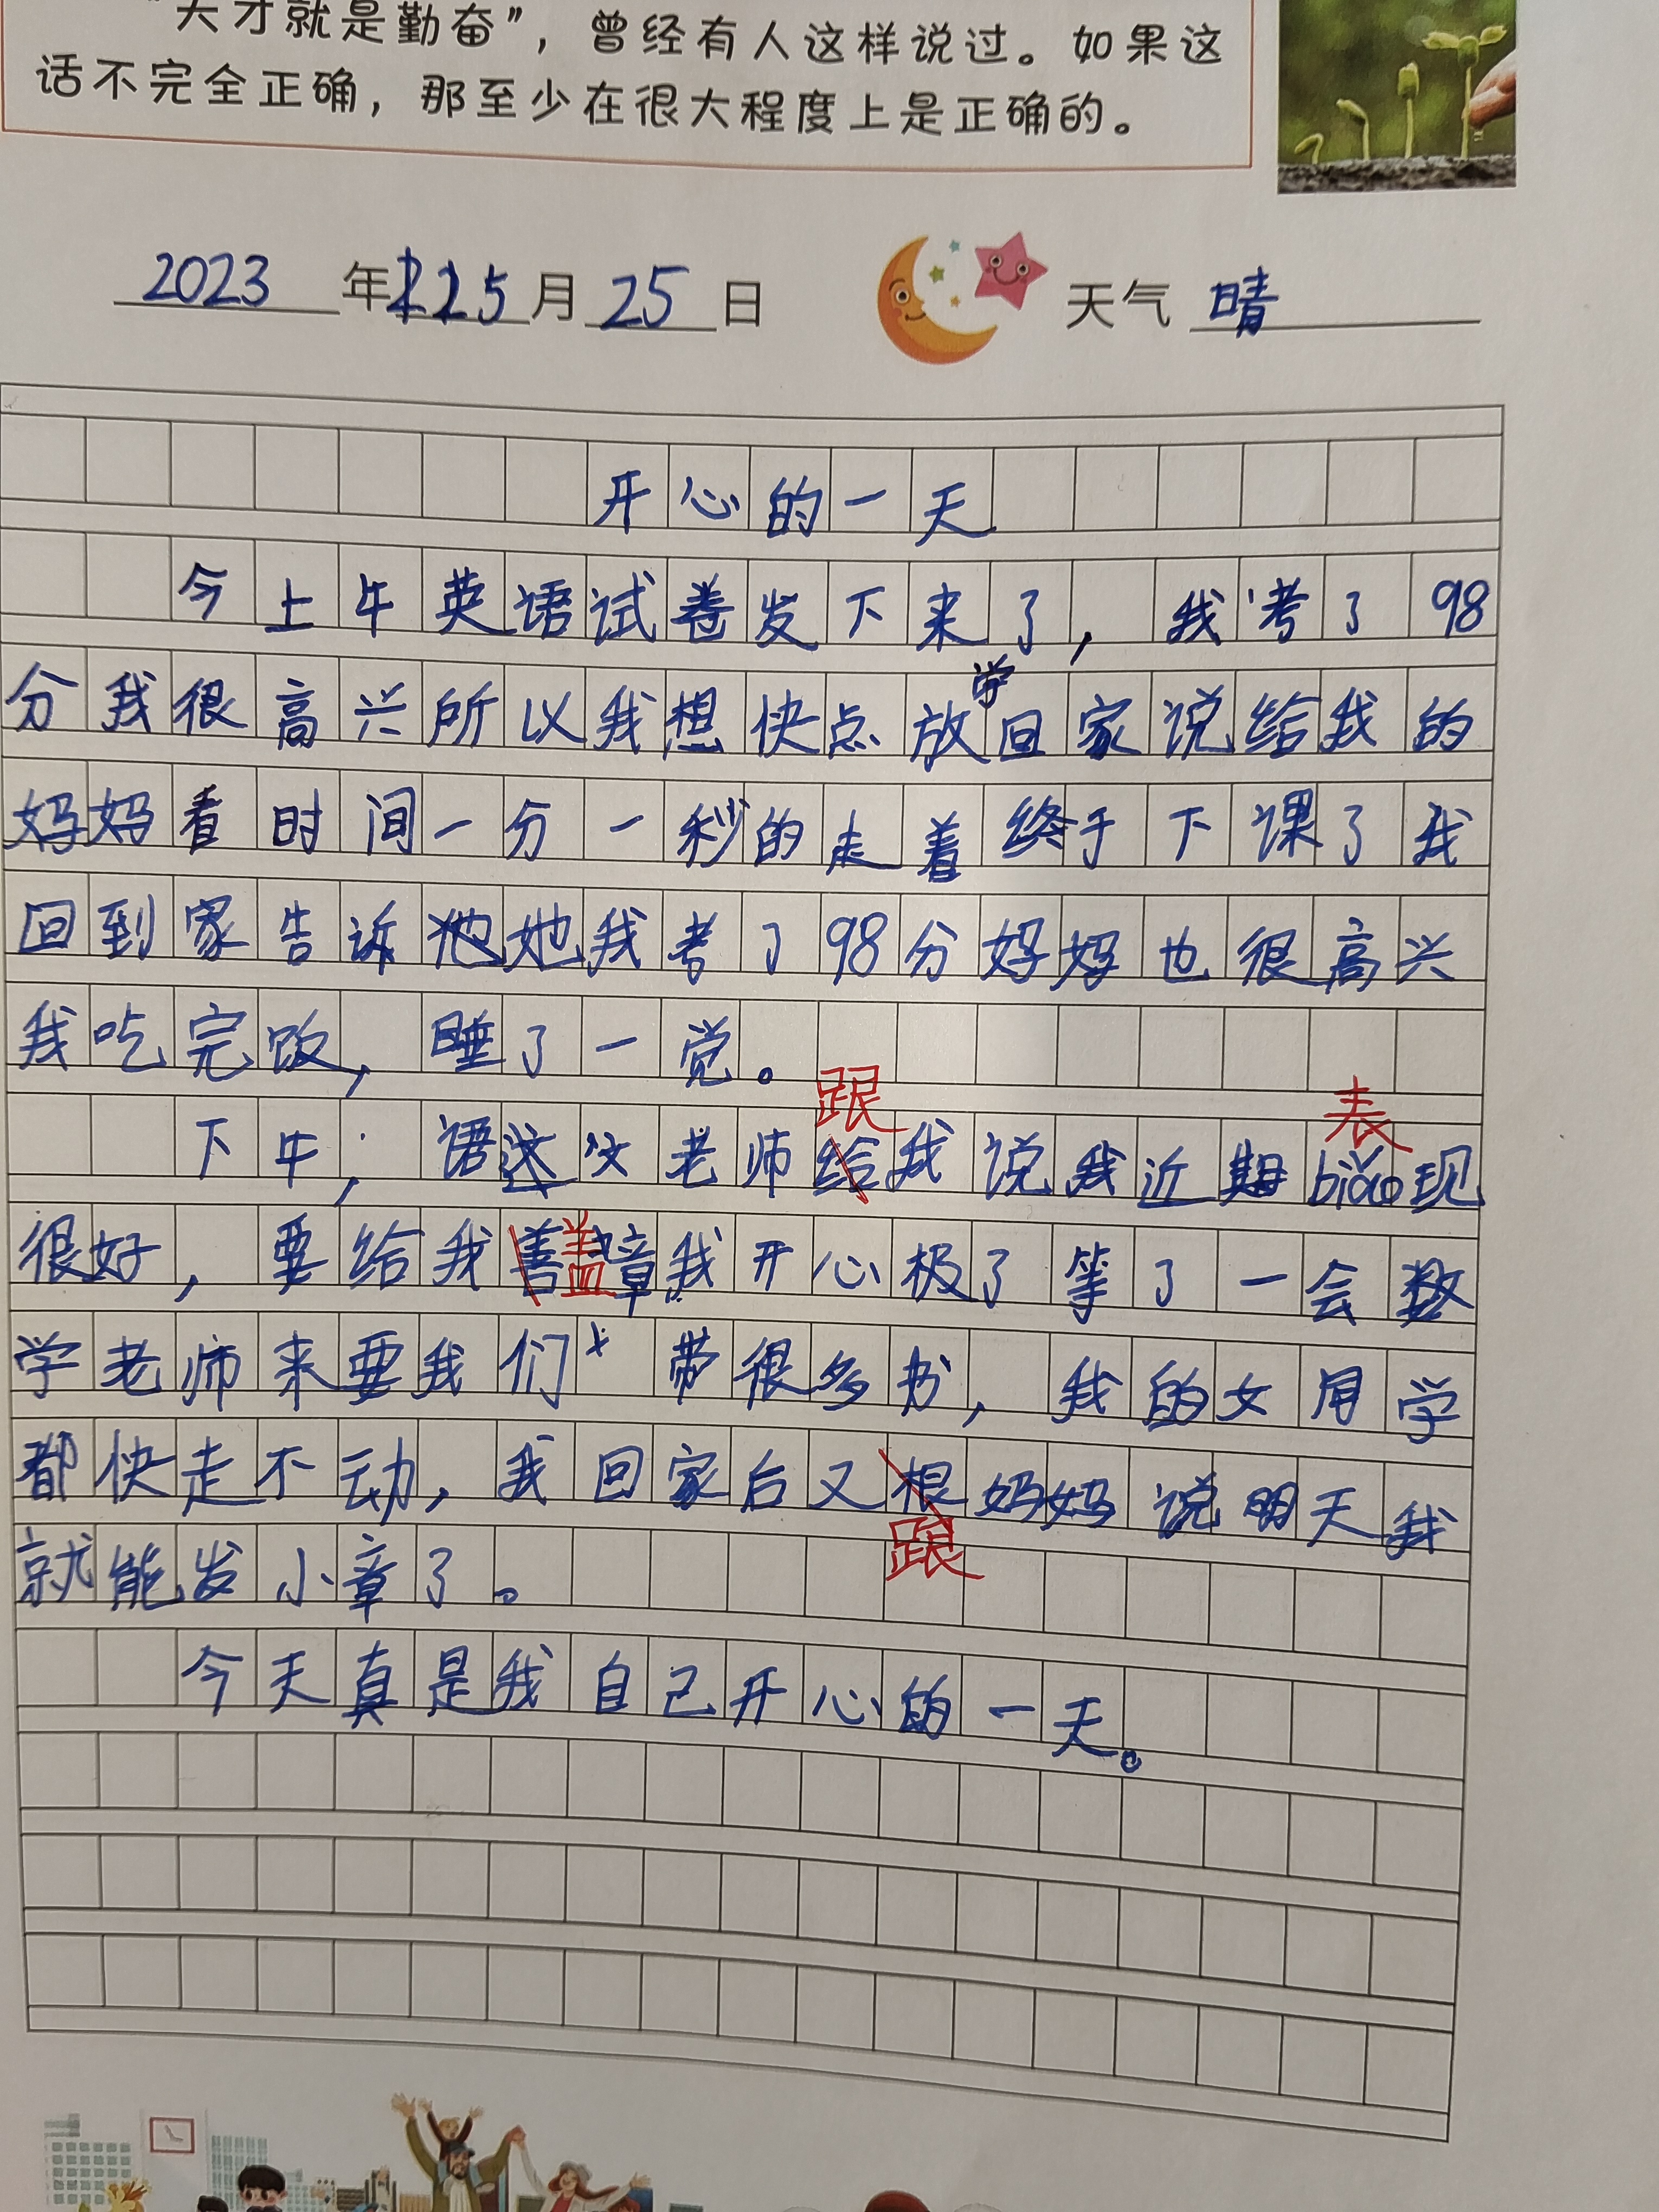 “天才就是勤奋”，曾经有人这样说过。如果这
话不完全正确，那至少在很大程度上是正确的。
2023年 5月25日 天气 晴
开心的一天
今上午英语试卷发下来了，我考了98
分我很高兴所以我想快点放学回家说给我的
妈妈看时间一分一秒的走着终于下课了我
回到家告诉她我考了98分好妈也很高兴
我吃完饭，睡了一觉。
跟 表
下午，语文老师给我说我近期biǎo现
很好，要给我善盖章我开心极了等了一会数
学老师来要我们带很多书，我的女同学
都快走不动，我回家后又根妈妈说明天我
跟
就能发小章了。
今天真是我自己开心的一天。